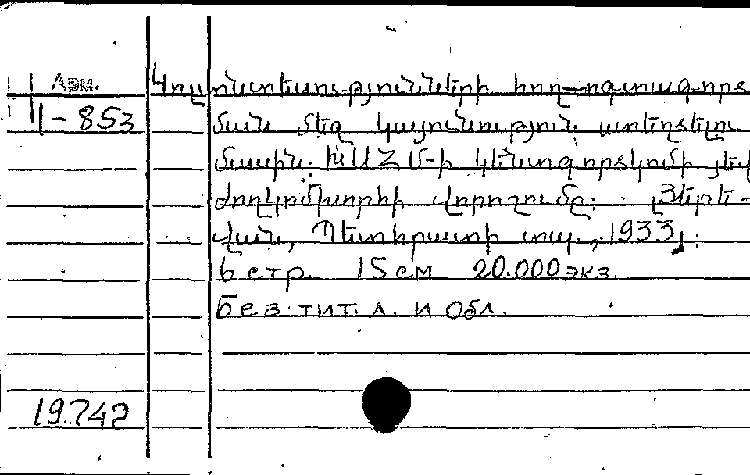 Арм.
Կոլտնտեսությունների հող-օգտագործ
II-853
ման մեջ կայունություն ստեղծելու
մասին: ԽՍՀՄ-ի կենտգործկոմի յեվ
ժողկոմխորհի վորոշումը: [Յերե-
վան, Պետհրատի տպ., 1933]:
6 стр. 15 см 20.000 экз.
Без тит. л. и обл.
19.742